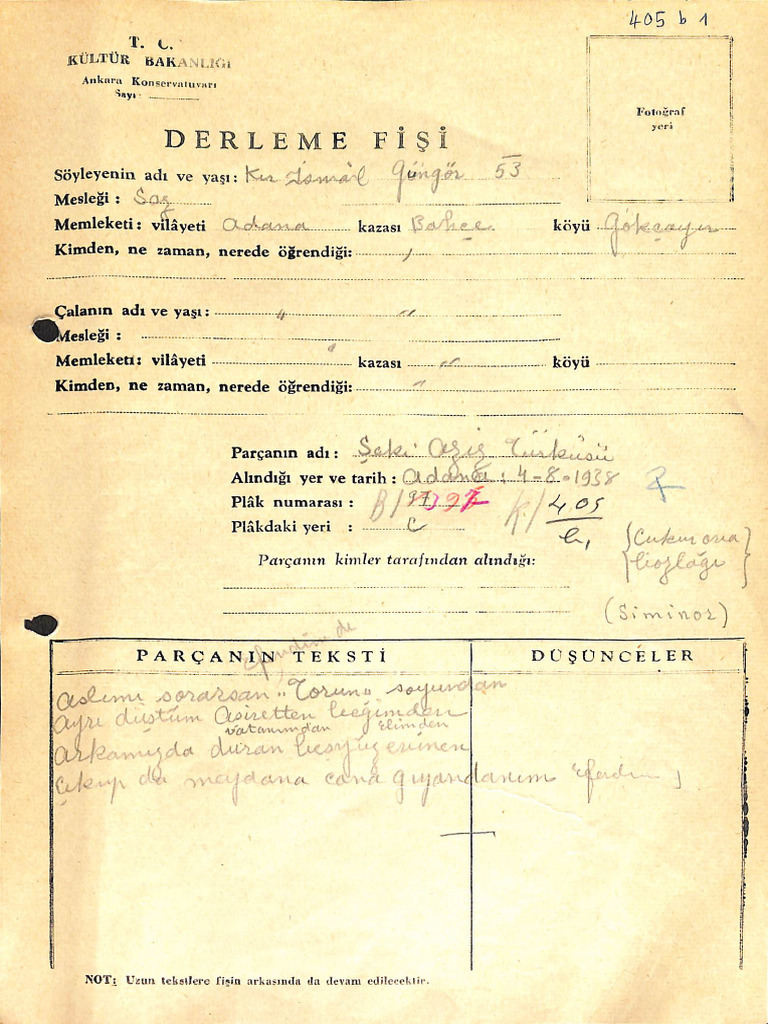 405 b 1
T. C.
KÜLTÜR BAKANLIĞI
Ankara Konservatuvarı
Sayı:
Fotoğraf
yeri
DERLEME FİŞİ
Söyleyenin adı ve yaşı: Kır İsmâil Güngör 53
Mesleği: Saz
Memleketi: vilâyeti Adana kazası Bahçe köyü Gökçayır
Kimden, ne zaman, nerede öğrendiği:
Çalanın adı ve yaşı: " "
Mesleği:
Memleketi: vilâyeti " kazası " köyü
Kimden, ne zaman, nerede öğrendiği: "
Parçanın adı: Şeki Aziz Türküsü
Alındığı yer ve tarih: Adana: 4-8-1938
Plâk numarası: B/ K/ 405
Plâkdaki yeri: C b1
{Çukurova
bozlağı}
Parçanın kimler tarafından alındığı:
(Siminor)
Efendim de
PARÇANIN TEKSTİ
DÜŞÜNCELER
Aslımı sorarsan "Torun" soyundan
Ayrı düştüm Aşiretten beğimden
vatanımdan elimden
Arkamızda duran beşyüz
Çıkıp da meydana cana
NOT: Uzun tekstlere fişin arkasında da devam edilecektir.